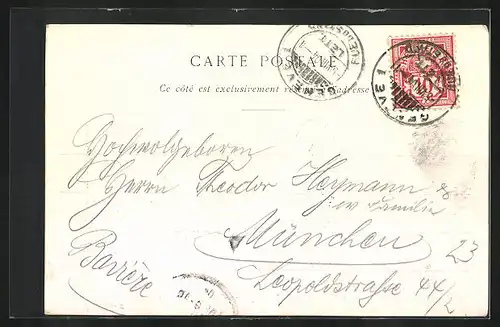 CARTE POSTALE
Ce côté est exclusivement réservé à l'adresse
GENÈVE 1
10
GENÈVE 1
Hochwolgeboren
Herrn Theodor Heymann &
Familie
München
Bavière
23
Leopoldstrasse 44/2